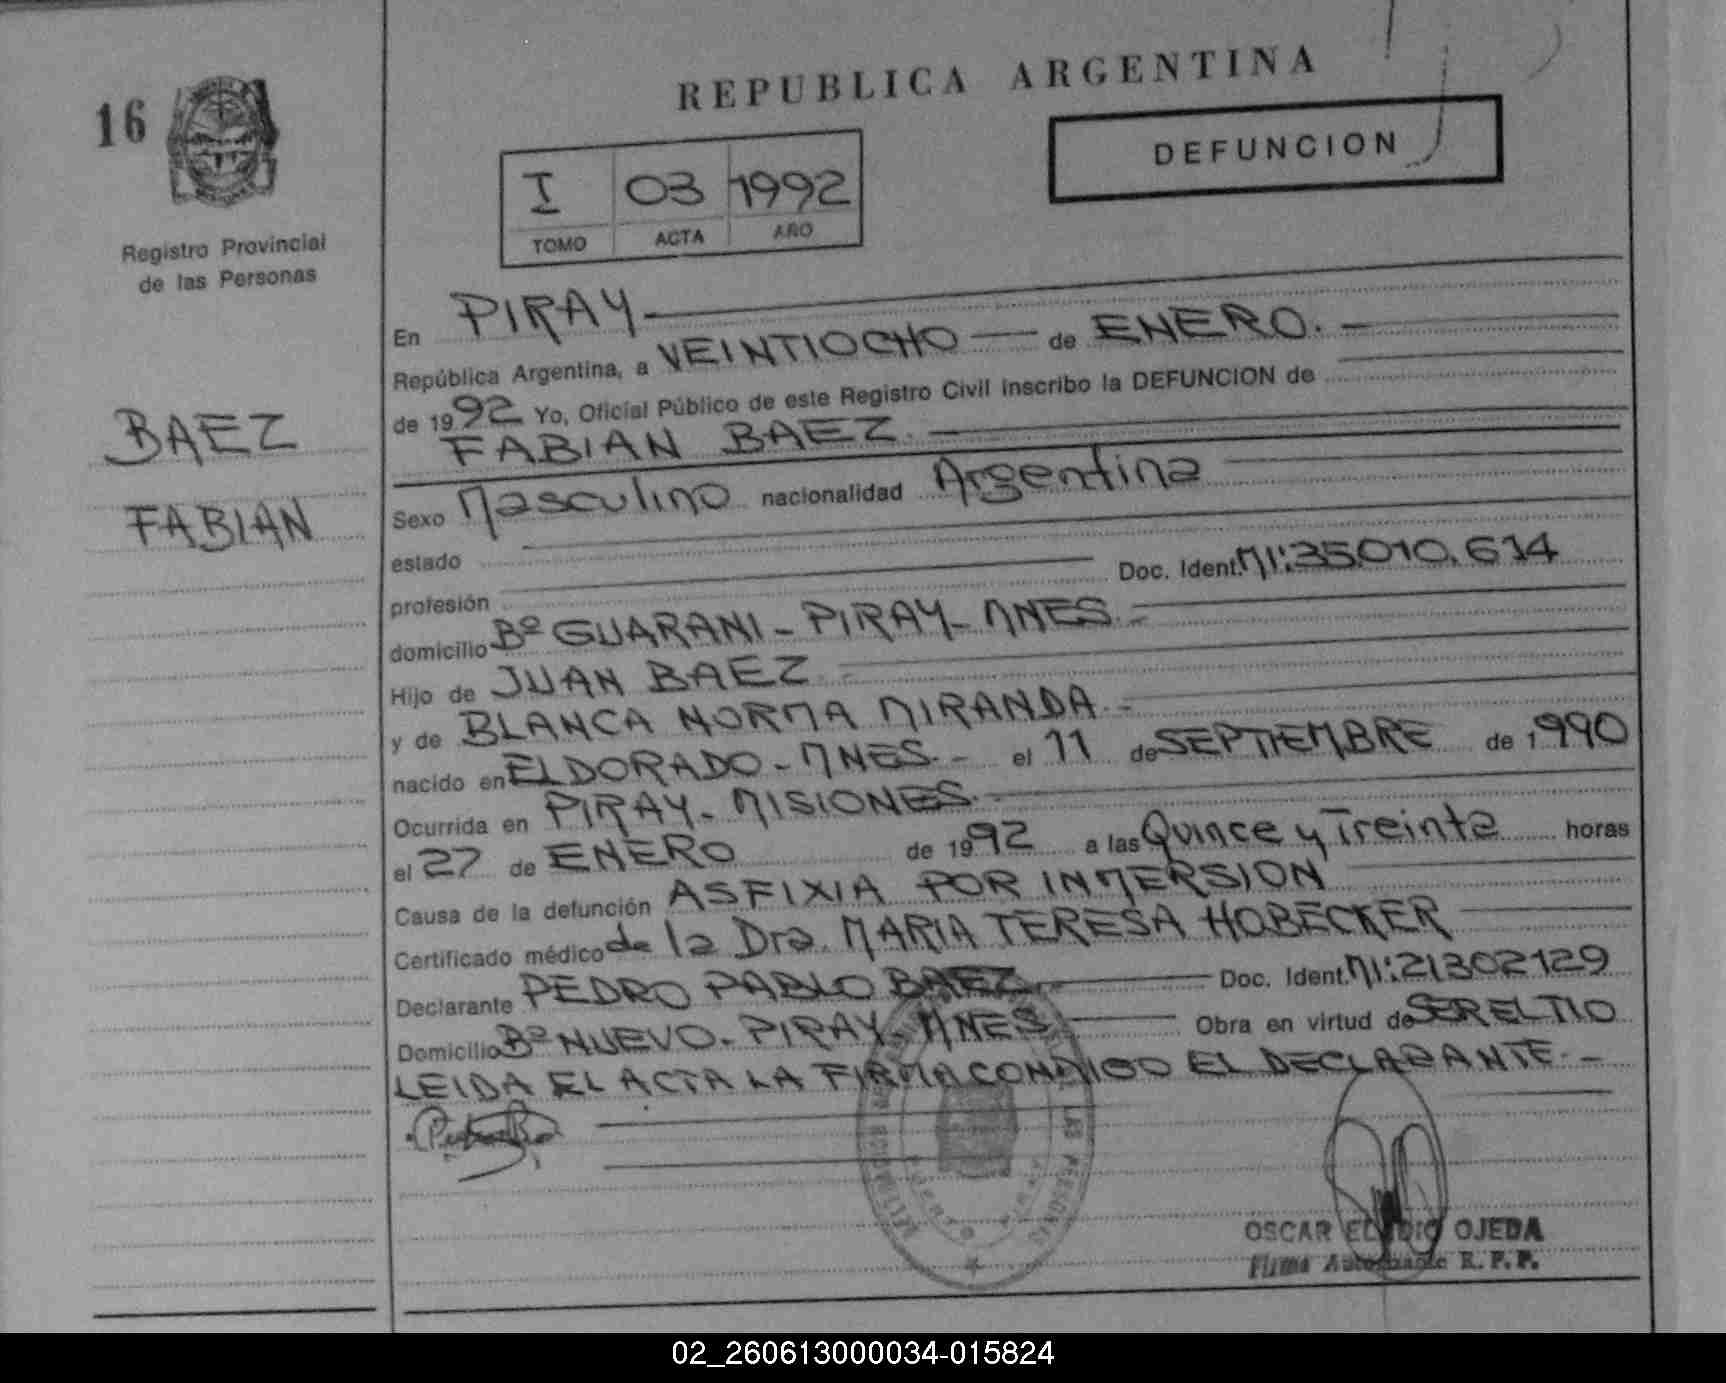 16
Registro Provincial
de las Personas
BAEZ
FABIAN
REPUBLICA ARGENTINA
DEFUNCION
I 03 1992
TOMO ACTA AÑO
En PIRAY
República Argentina, a VEINTIOCHO de ENERO.
de 1992 Yo, Oficial Público de este Registro Civil inscribo la DEFUNCION de
FABIAN BAEZ.
Sexo Masculino nacionalidad Argentina
estado
profesión Doc. Ident. MI:35.010.614
domicilio Bº GUARANI - PIRAY - MNES.
Hijo de JUAN BAEZ
y de BLANCA NORMA MIRANDA.
nacido en ELDORADO - MNES. - el 11 de SEPTIEMBRE de 1990
Ocurrida en PIRAY - MISIONES.
el 27 de ENERO de 1992 a las Quince y Treinta horas
Causa de la defunción ASFIXIA POR INMERSION
Certificado médico de la Dra. MARIA TERESA HOBECKER
Declarante PEDRO PABLO BAEZ Doc. Ident. MI:21302129
Domicilio Bº NUEVO - PIRAY - MNES Obra en virtud de SER EL TIO
LEIDA EL ACTA LA FIRMA CONMIGO EL DECLARANTE. -
LAS PERSONAS
OSCAR ELVIDIO OJEDA
Firma Autorizante R.P.P.
02_260613000034-015824